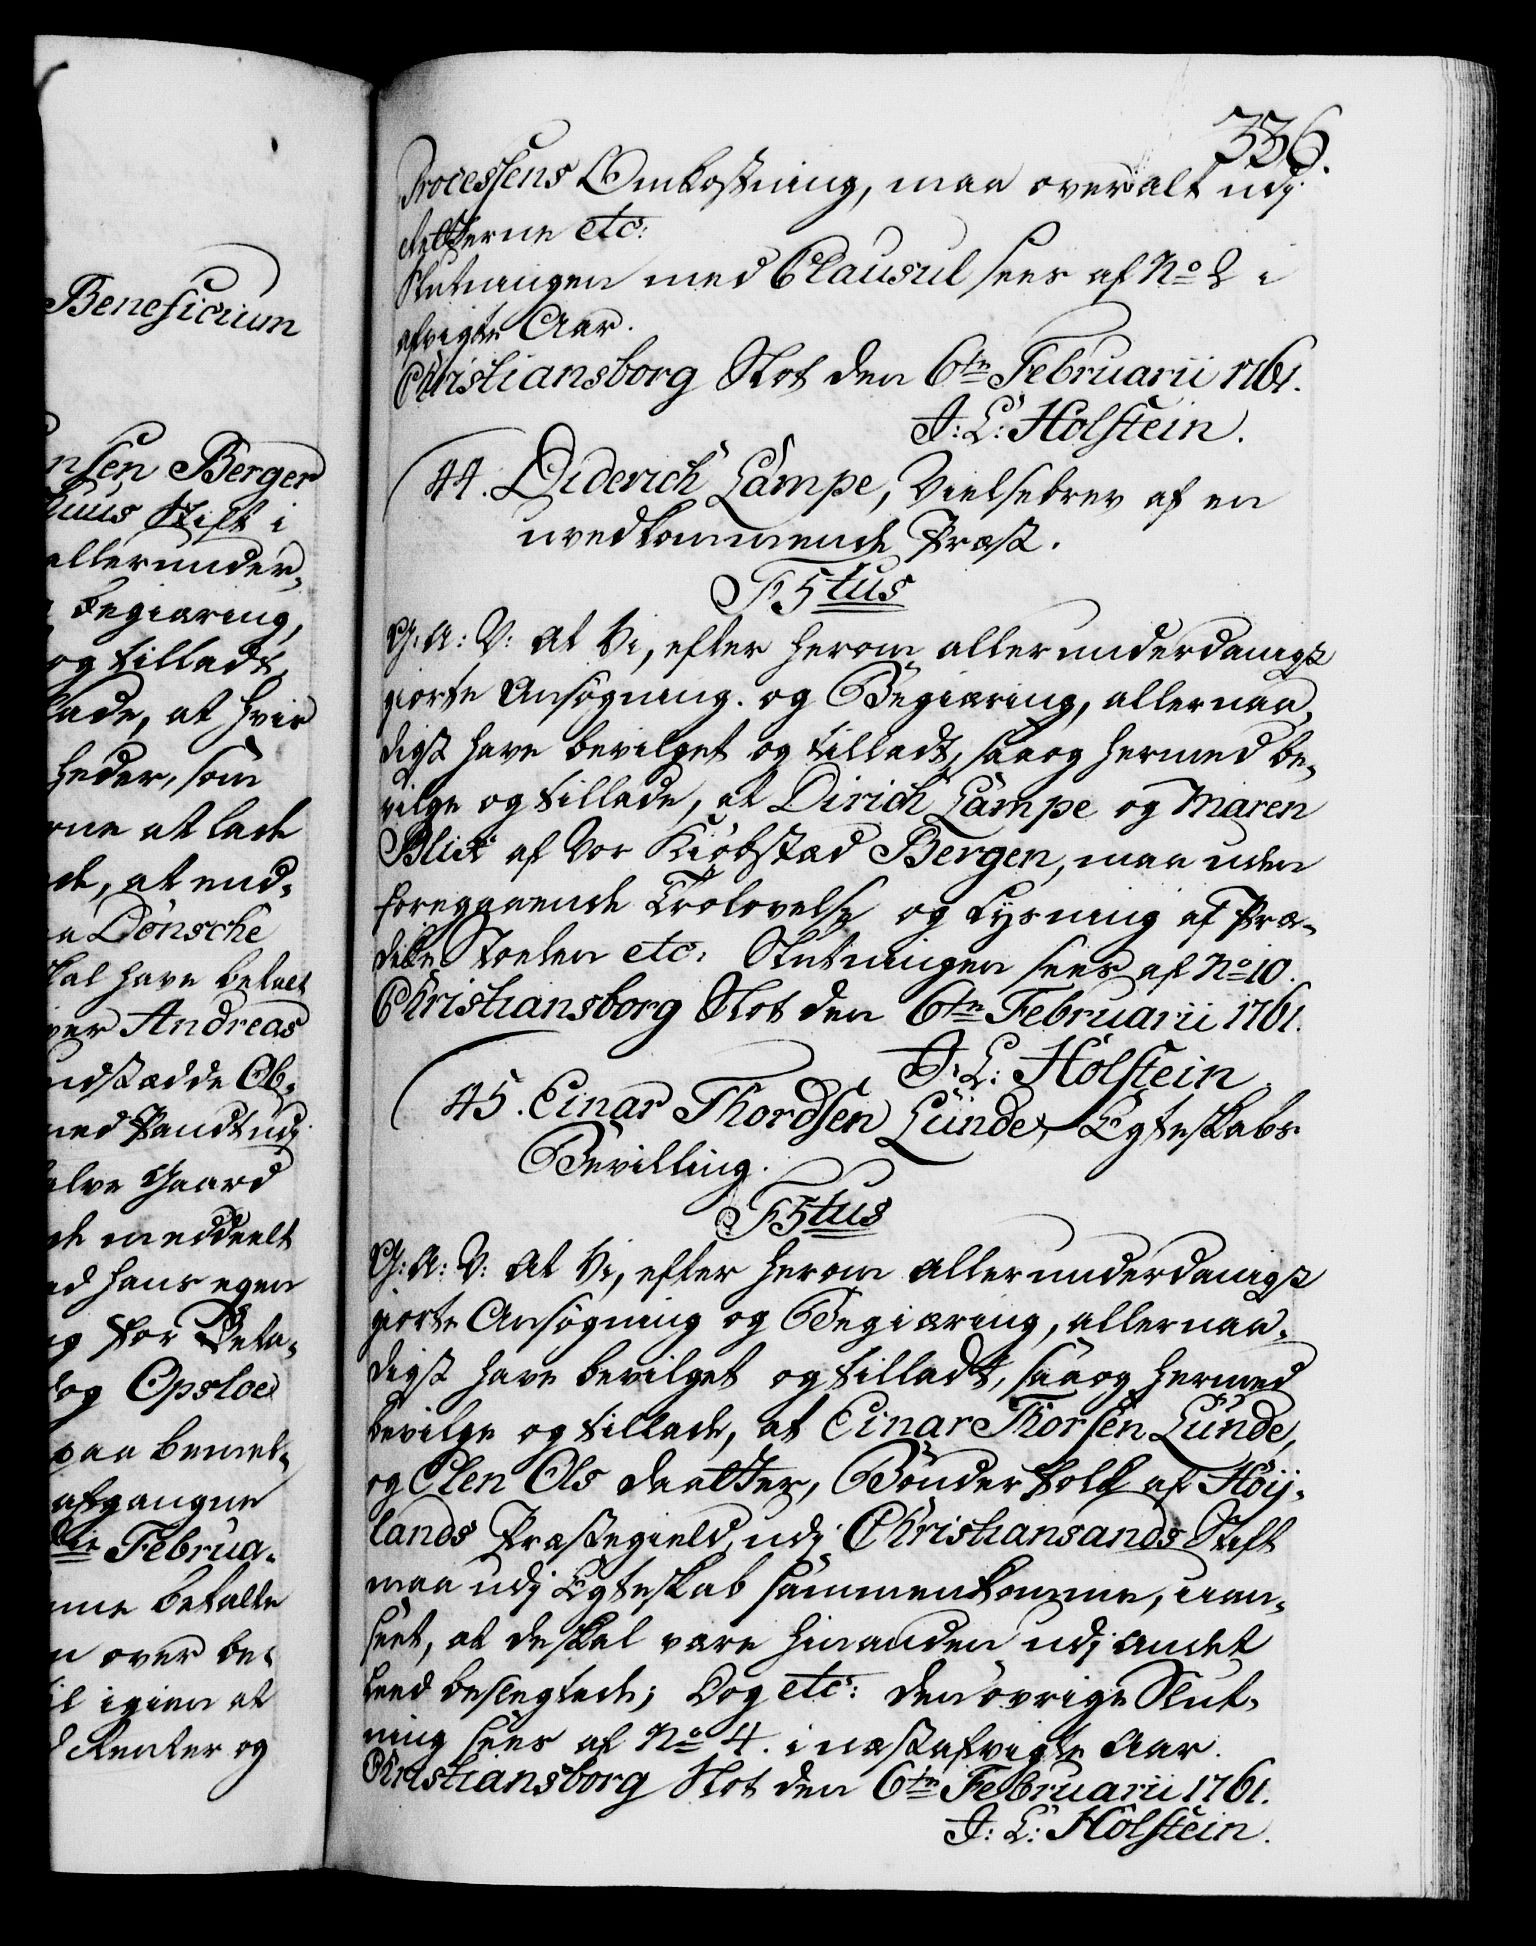 Beneficium
nsen Berger
huus Stift i
allerunder,
begiæring,
og tilladt,
lade, at hvis
heder, som
rne at lade
de, at end,
a Dönsche
skal have betalt
ver Andreas
udstædde Ob,
med Pandt udj
alve Gaard
de meddeelt
ed hans egen
g for Beta,
og Opsloe
paa bemel,
afgangne
die Februa,
me betalte
n over be,
il igien at
Renter og
336.
Processens Omkostning, maa overalt udj
Retterne etc:
Slutningen med Clausul sees af No 2 i
afvigte Aar.
Christiansborg Slot den 6te Februarii 1761.
J: L: Holstein.
44. Diderich Lampe, Vielsebrev af en
uvedkommende Præst.
F 5tus
G: A: V: At Vi, efter herom allerunderdanigst
giorte Ansøgning og Begiæring, allernaa,
digst have bevilget og tilladt, saa og hermed be,
vilge og tillade, at Dirich Lampe og Maren
Blick af Vor Kiøbstæd Bergen, maa uden
foregaaende Trolovelse og Lysning af Præ,
dike Stolen etc: Slutningen sees af No 10.
Christiansborg Slot den 6te Februarii 1761.
J: L: Holstein
45. Einar Thordsen Lunde, Egteskabs
Bevilling.
F 5tus
G: A: V: At Vi, efter herom allerunderdanigst
giorte Ansøgning og Begiæring, allernaa,
digst have bevilget og tilladt, saa og hermed
bevilge og tillade, at Einar Thorsen Lunde,
og Elen Ols Daatter, Bønder folk af Høij,
lands Præstegield, udj Christiansands Stift
maa udj Egteskab sammenkomme, uan,
seet, at de skal være hinanden udj andet
Leed beslegtede; Dog etc: den øvrige Slut,
ning sees af No 4. i næstafvigte Aar.
Christiansborg Slot den 6te Februarii 1761.
J: L: Holstein.